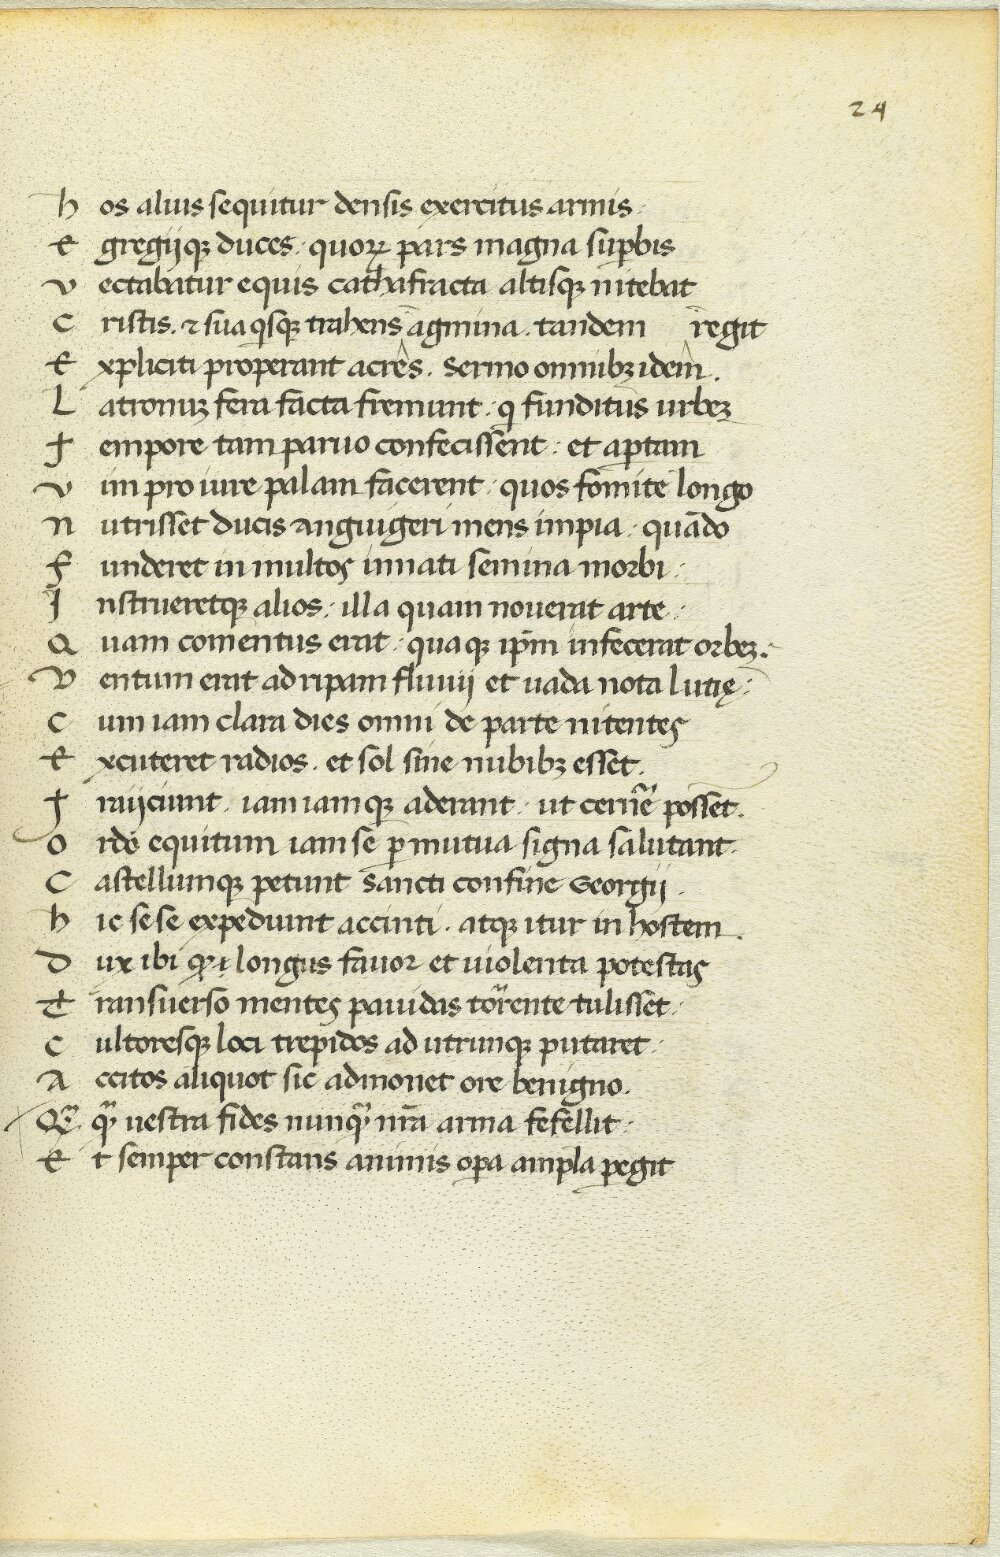 24
Hos alius sequitur densis exercitus armis
Egregijqꝫ duces · quoꝝ pars magna suꝑbis
Vectabatur equis cathafracta altisqꝫ nitebat
Cristis. ⁊ sua qsqꝫ trahens agmina. tandem regit
Expliciti properant acres. Sermo omnibꝫ idem.
Latronuꝫ fera facta fremunt · ꝙ funditus urbeꝫ
Tempore tam paruo confecissent : et aptam
Vim pro iure palam facerent · quos fomite longo
Nutrisset ducis anguigeri mens impia · quādo
Funderet in multos innati semina morbi :
Instrueretqꝫ alios · illa quam nouerat arte ·
Quam comentus erat · quaqꝫ ip̄m infecerat orbeꝫ.
Ventum erat ad ripam fluuij et uada nota lutię :
Cum iam clara dies omni de parte nitentes
Excuteret radios. et sol sine nubibꝫ esset.
Traijciunt. iam iamqꝫ aderant · ut cerne posset.
Ordo equitum iam se ꝑ mutua signa salutant.
Castellumqꝫ petunt Sancti confine Georgij.
Hic sese expediunt accinti. atqꝫ itur in hostem.
Dux ibi longus fauor et uiolenta potestas
Transuerso mentes pauidas torrente tulisset ·
Cultoresqꝫ loci trepidos ad utrunqꝫ putaret ·
Accitos aliquot sic admonet ore benigno.
uestra fides nunqᷓ nr̄a arma fefellit ·
Et semper constans animis oꝑa ampla ꝑegit